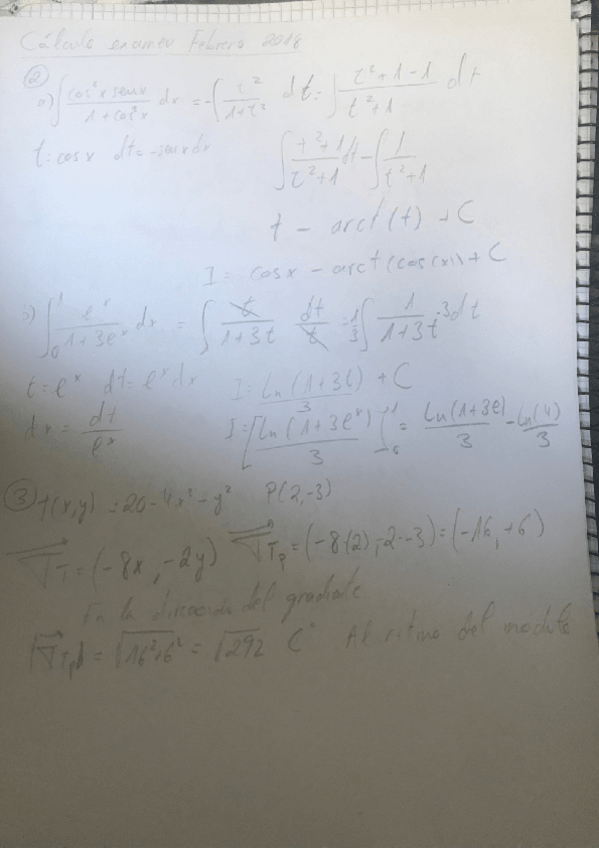 Cálculo examen Febrero 2018
②
a) ∫ cos²x senx / 1 + cos²x dx = -∫ t² / 1+t² dt = ∫ t²+1-1 / t²+1 dt
t = cosx dt = -senxdx ∫ t²+1 / t²+1 dt - ∫ 1 / t²+1
t - arct(t) + C
I = cosx - arct(cos(x)) + C
b) ∫₀¹ eˣ / 1+3eˣ dx = ∫ t / 1+3t dt / t = 1/3 ∫ 1 / 1+3t ·3dt
t = eˣ dt = eˣdx I = Ln(1+3t) / 3 + C
dx = dt / eˣ I = [Ln(1+3eˣ) / 3]₀¹ = Ln(1+3e) / 3 - Ln(4) / 3
③ T(x,y) = 20 - 4x² - y² P(2,-3)
∇T = (-8x, -2y) ∇Tp = (-8(2), -2·-3) = (-16, +6)
En la dirección del gradiente
|∇Tp| = √16²+6² = √292 C° Al ritmo del modulo